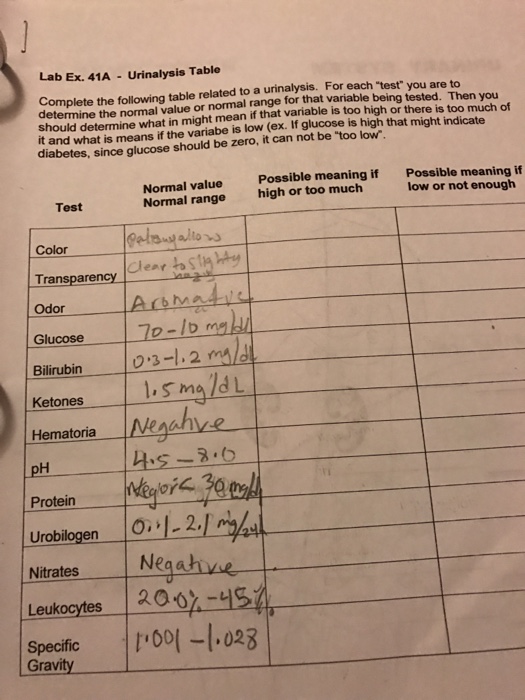 Lab Ex. 41A - Urinalysis Table
Complete the following table related to a urinalysis. For each "test" you are to
determine the normal value or normal range for that variable being tested. Then you
should determine what in might mean if that variable is too high or there is too much of
it and what is means if the variabe is low (ex. If glucose is high that might indicate
diabetes, since glucose should be zero, it can not be "too low".
Test
Normal value
Normal range
Possible meaning if
high or too much
Possible meaning if
low or not enough
Color
Transparency Clear to slighty
Odor Aromatic
Glucose 70-10 mg/dl
Bilirubin 0.3-1.2 mg/dL
Ketones 1.5 mg/dL
Hematoria Negative
pH 4.5-8.0
Protein 30 mg/dl
Urobilogen 2.1 mg/24h
Nitrates Negative
Leukocytes 20.0%-45%
Specific
Gravity 1.001-1.028